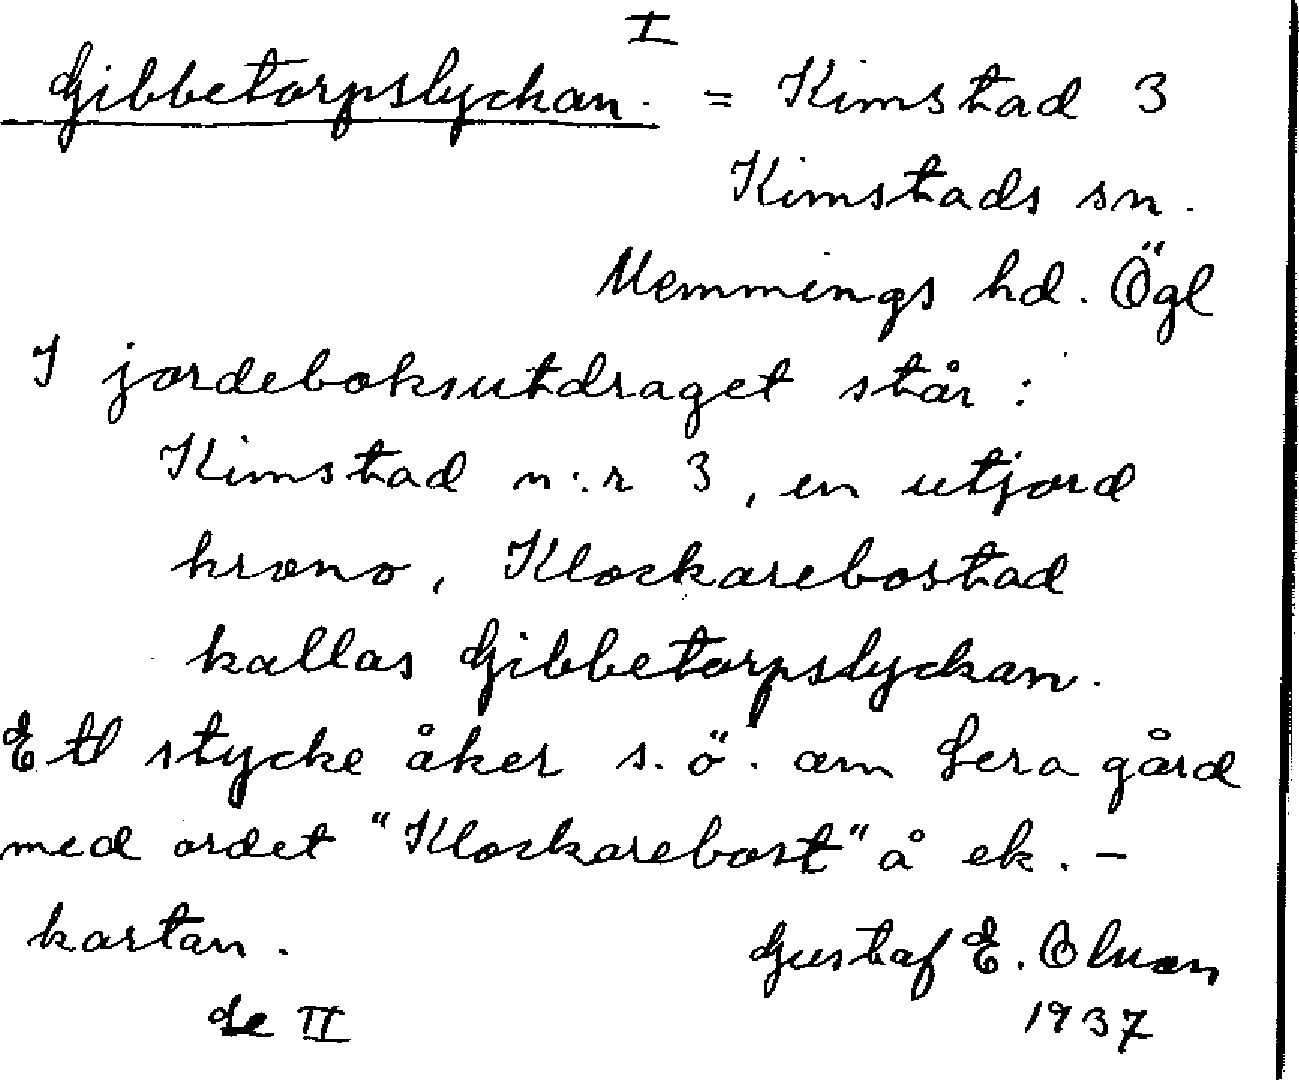 I
Gibbetorpslyckan. = Kimstad 3
Kimstads sn.
Memmings hd. Ögl
I jordeboksutdraget står :
Kimstad n:r 3, en utjord
krono, Klockarebostad
kallas Gibbetorpslyckan.
Ett stycke åker s.ö. om Lera gård
med ordet "Klockarebost" å ek. -
kartan.
Gustaf E. Olson
se II
1937